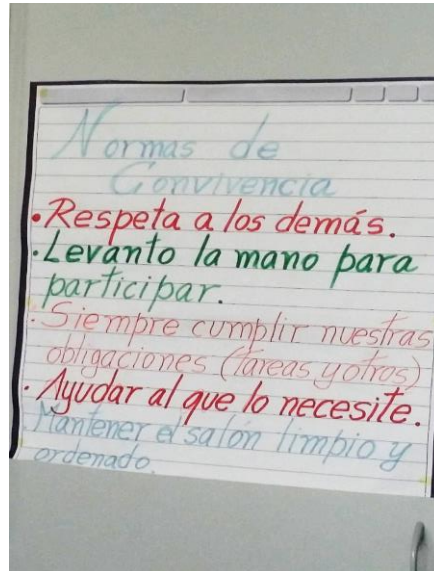 Normas de
Convivencia
• Respeta a los demás.
• Levanto la mano para
participar.
• Siempre cumplir nuestras
obligaciones (tareas y otros)
• Ayudar al que lo necesite.
Mantener el salón limpio y
ordenado.